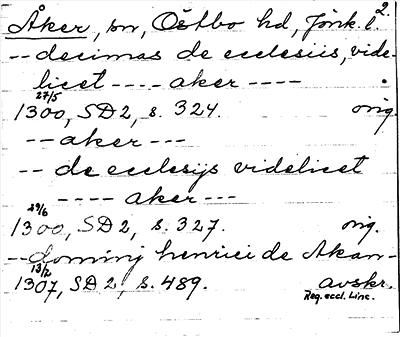 Åker, sn, Östbo hd, Jönk. l. 2.
-- decimas de ecclesiis, vide-
licet ---- aker ----
27/5
1300, SD 2, s. 324. orig.
-- aker ---
-- de ecclesijs videlicet
---- aker ---
29/6
1300, SD 2, s. 327. orig.
-- dominj henrici de Akan-
13/2
1307, SD 2, s. 489. avskr.
Reg. eccl. Linc.